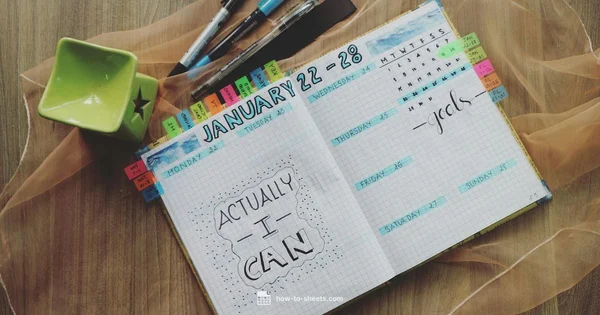 JANUARY 22-28
MONDAY 22
TUESDAY 23
ACTUALLY
- I -
CAN
WEDNESDAY 24
THURSDAY 25
FRIDAY 26
SATURDAY 27
SUNDAY 28
M T W T F S S
-goals-
how-to-sheets.com